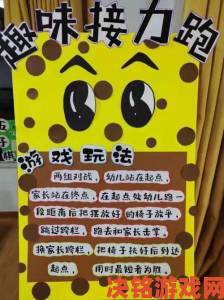 趣味接力跑
游戏玩法
两组对战，幼儿站在起点，
家长站在终点，在起点处幼儿跑一
段距离后把摆放好的椅子放平，
跳过跨栏，跑去和家长击掌，
换家长跨栏，把椅子扶好后到达
起点，用时最短者为胜。
决铭游戏网